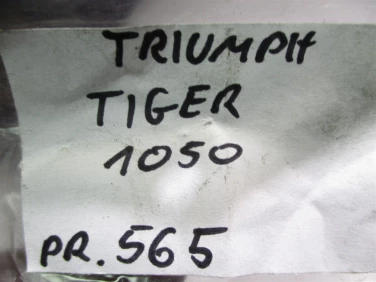 TRIUMPH
TIGER
1050
PR. 565